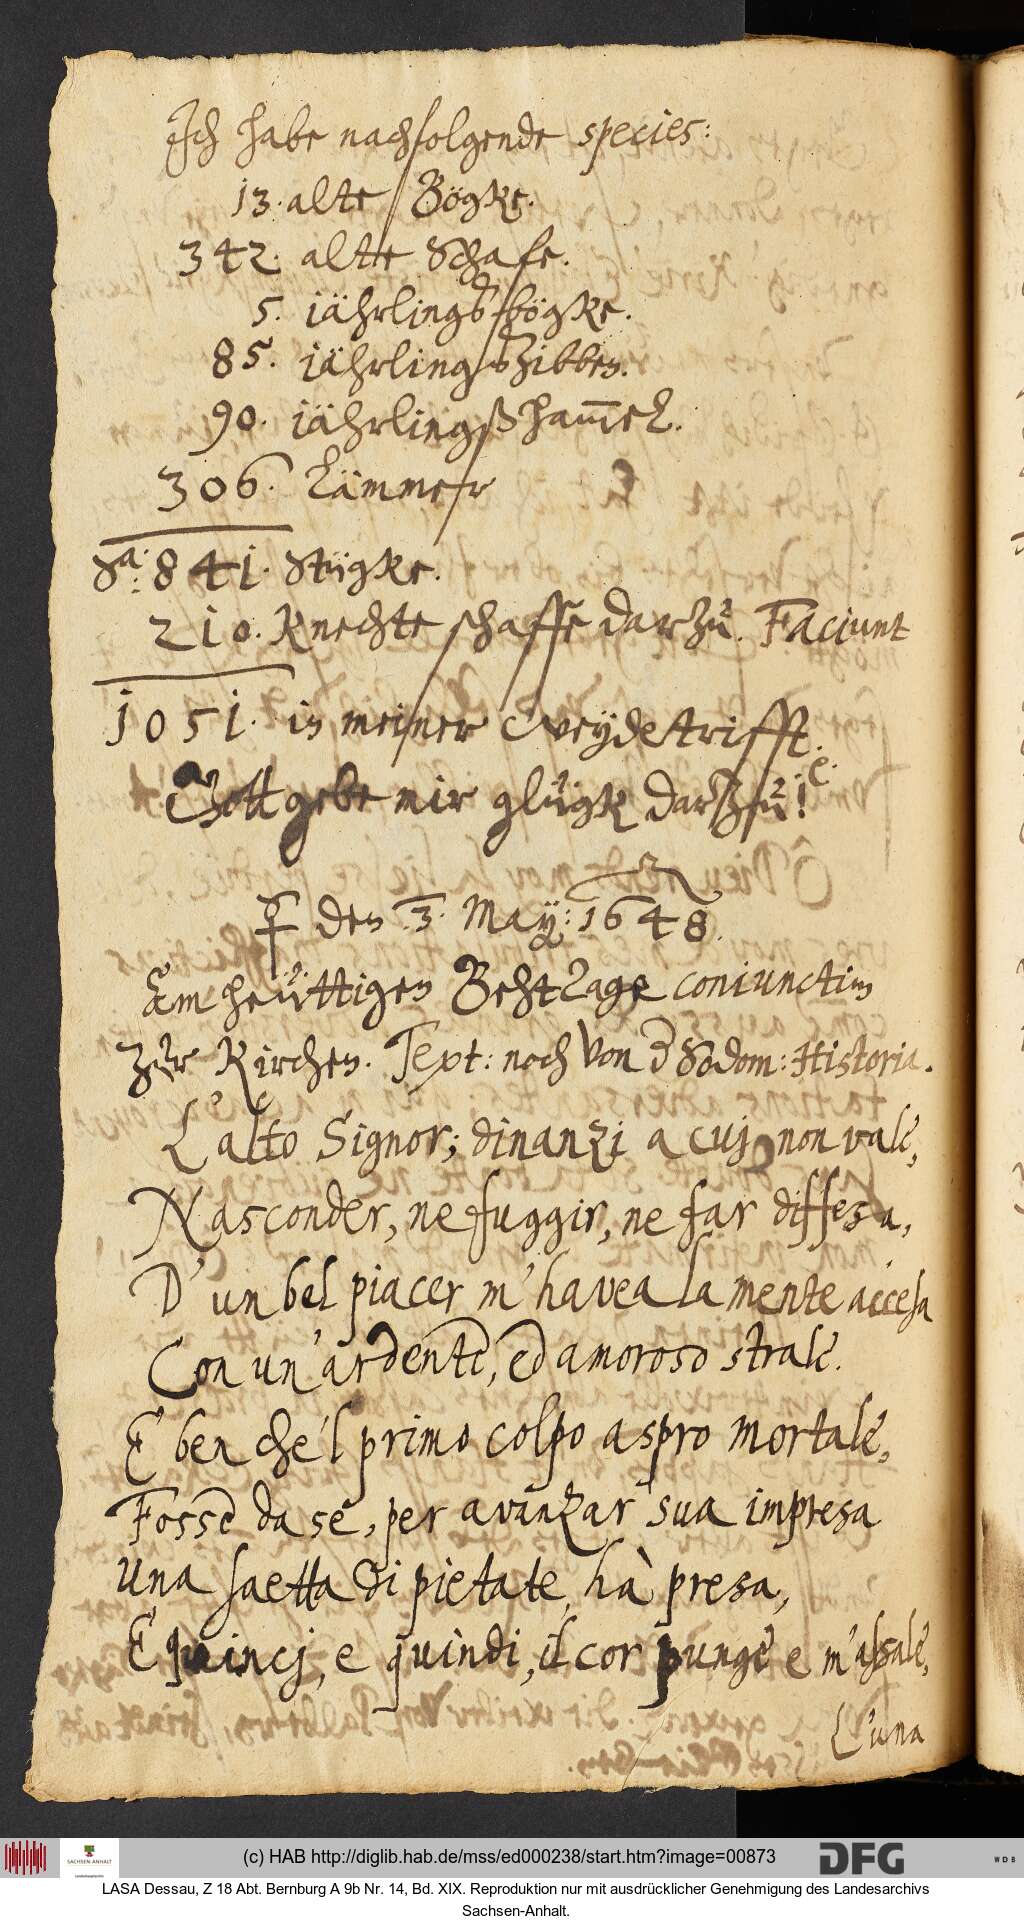 Ich habe nachfolgende species:
13. alte Bögke.
342. alte Schafe.
5. iährlingsbögke.
85. iährlingsZibben.
90. iährlingßham̄el.
306. Lämmer
Sa: 841. Stügke.
210. Knechte schaffe darzu. Faciunt
1051. in meiner Weydetrifft.
Gott gebe mir glügk darzu! e.
♀ den 3. May: 1648.
Am heüttigen BehtTage coniunctim
zur Kirchen. Text: noch von d Sodom: Historia.
L'alto Signor; dinanzi a cuj non vale,
Nasconder, ne fuggir, ne far diffesa,
D'un bel piacer m'havea la mente accesa
Con un'ardente, ed amoroso strale.
E ben che'l primo colpo aspro mortale,
Fosse da se, per avanzar sua impresa
Una saetta di pietate, hà presa,
E quincj, e quindi, il cor punge e m'assale,
L'una
(c) HAB http://diglib.hab.de/mss/ed000238/start.htm?image=00873
SACHSEN-ANHALT
DFG
WDB
LASA Dessau, Z 18 Abt. Bernburg A 9b Nr. 14, Bd. XIX. Reproduktion nur mit ausdrücklicher Genehmigung des Landesarchivs
Sachsen-Anhalt.